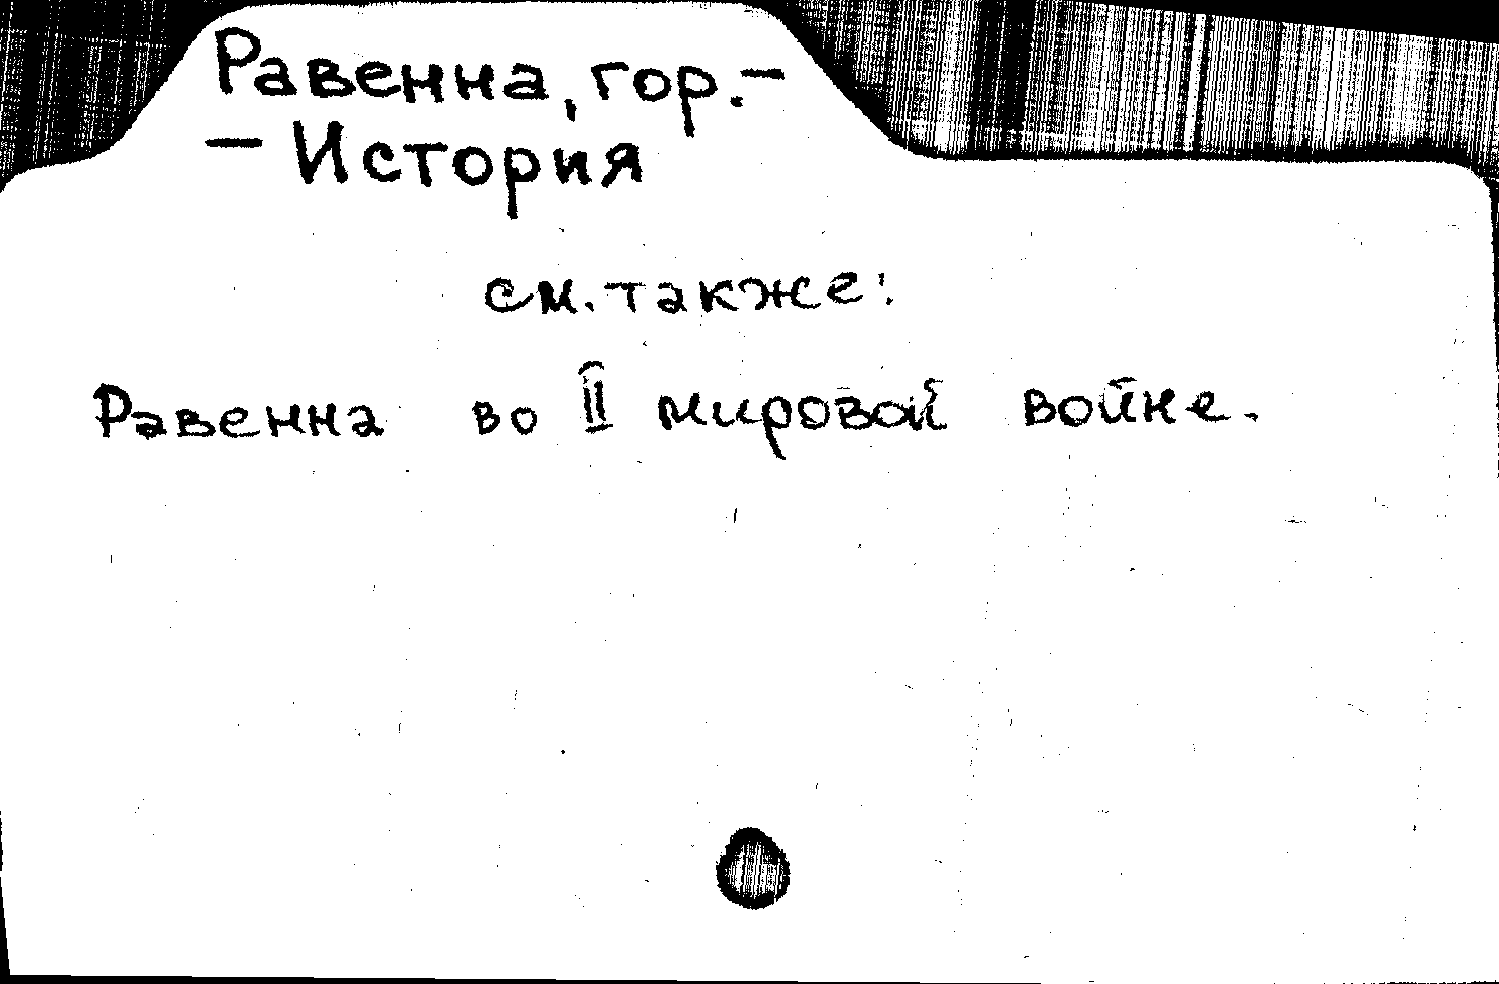 Равенна, гор. -
- История
см. также:
Равенна во II мировой войне.